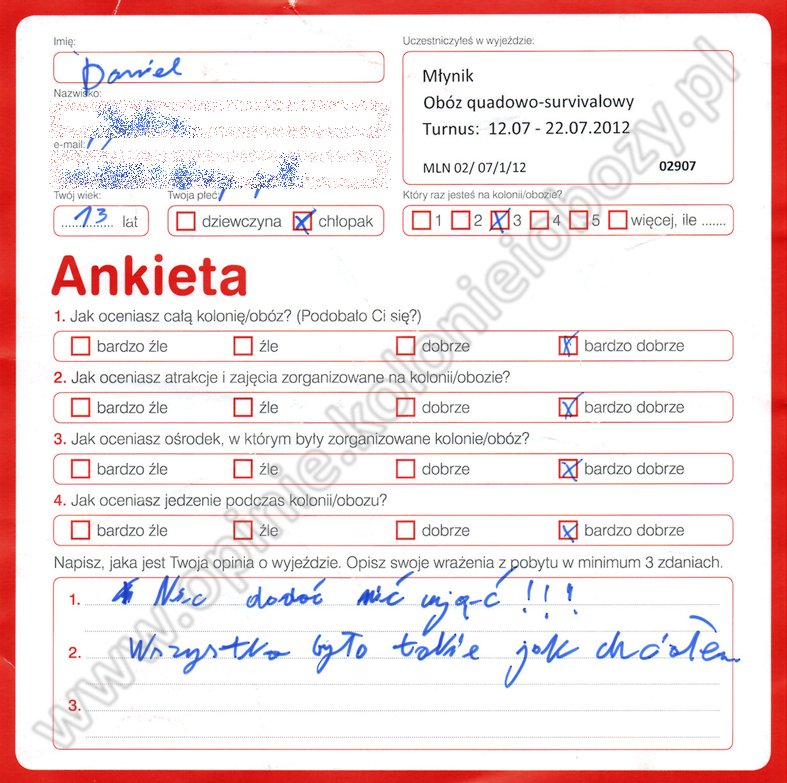 Imię:
Daniel
Uczestniczyłeś w wyjeździe:
Młynik
Obóz quadowo-survivalowy
Turnus: 12.07 - 22.07.2012
MLN 02/ 07/1/12 02907
Nazwisko:
e-mail:
Twój wiek:
13 lat
Twoja płeć
dziewczyna chłopak
Który raz jesteś na kolonii/obozie?
1 2 3 4 5 więcej, ile .......
Ankieta
1. Jak oceniasz całą kolonię/obóz? (Podobało Ci się?)
bardzo źle źle dobrze bardzo dobrze
2. Jak oceniasz atrakcje i zajęcia zorganizowane na kolonii/obozie?
bardzo źle źle dobrze bardzo dobrze
3. Jak oceniasz ośrodek, w którym były zorganizowane kolonie/obóz?
bardzo źle źle dobrze bardzo dobrze
4. Jak oceniasz jedzenie podczas kolonii/obozu?
bardzo źle źle dobrze bardzo dobrze
Napisz, jaka jest Twoja opinia o wyjeździe. Opisz swoje wrażenia z pobytu w minimum 3 zdaniach.
1. Nic dodać nić ująć !!!
2. Wszystko było takie jak chciałem
3.
www.opinie.kolonieiobozy.pl